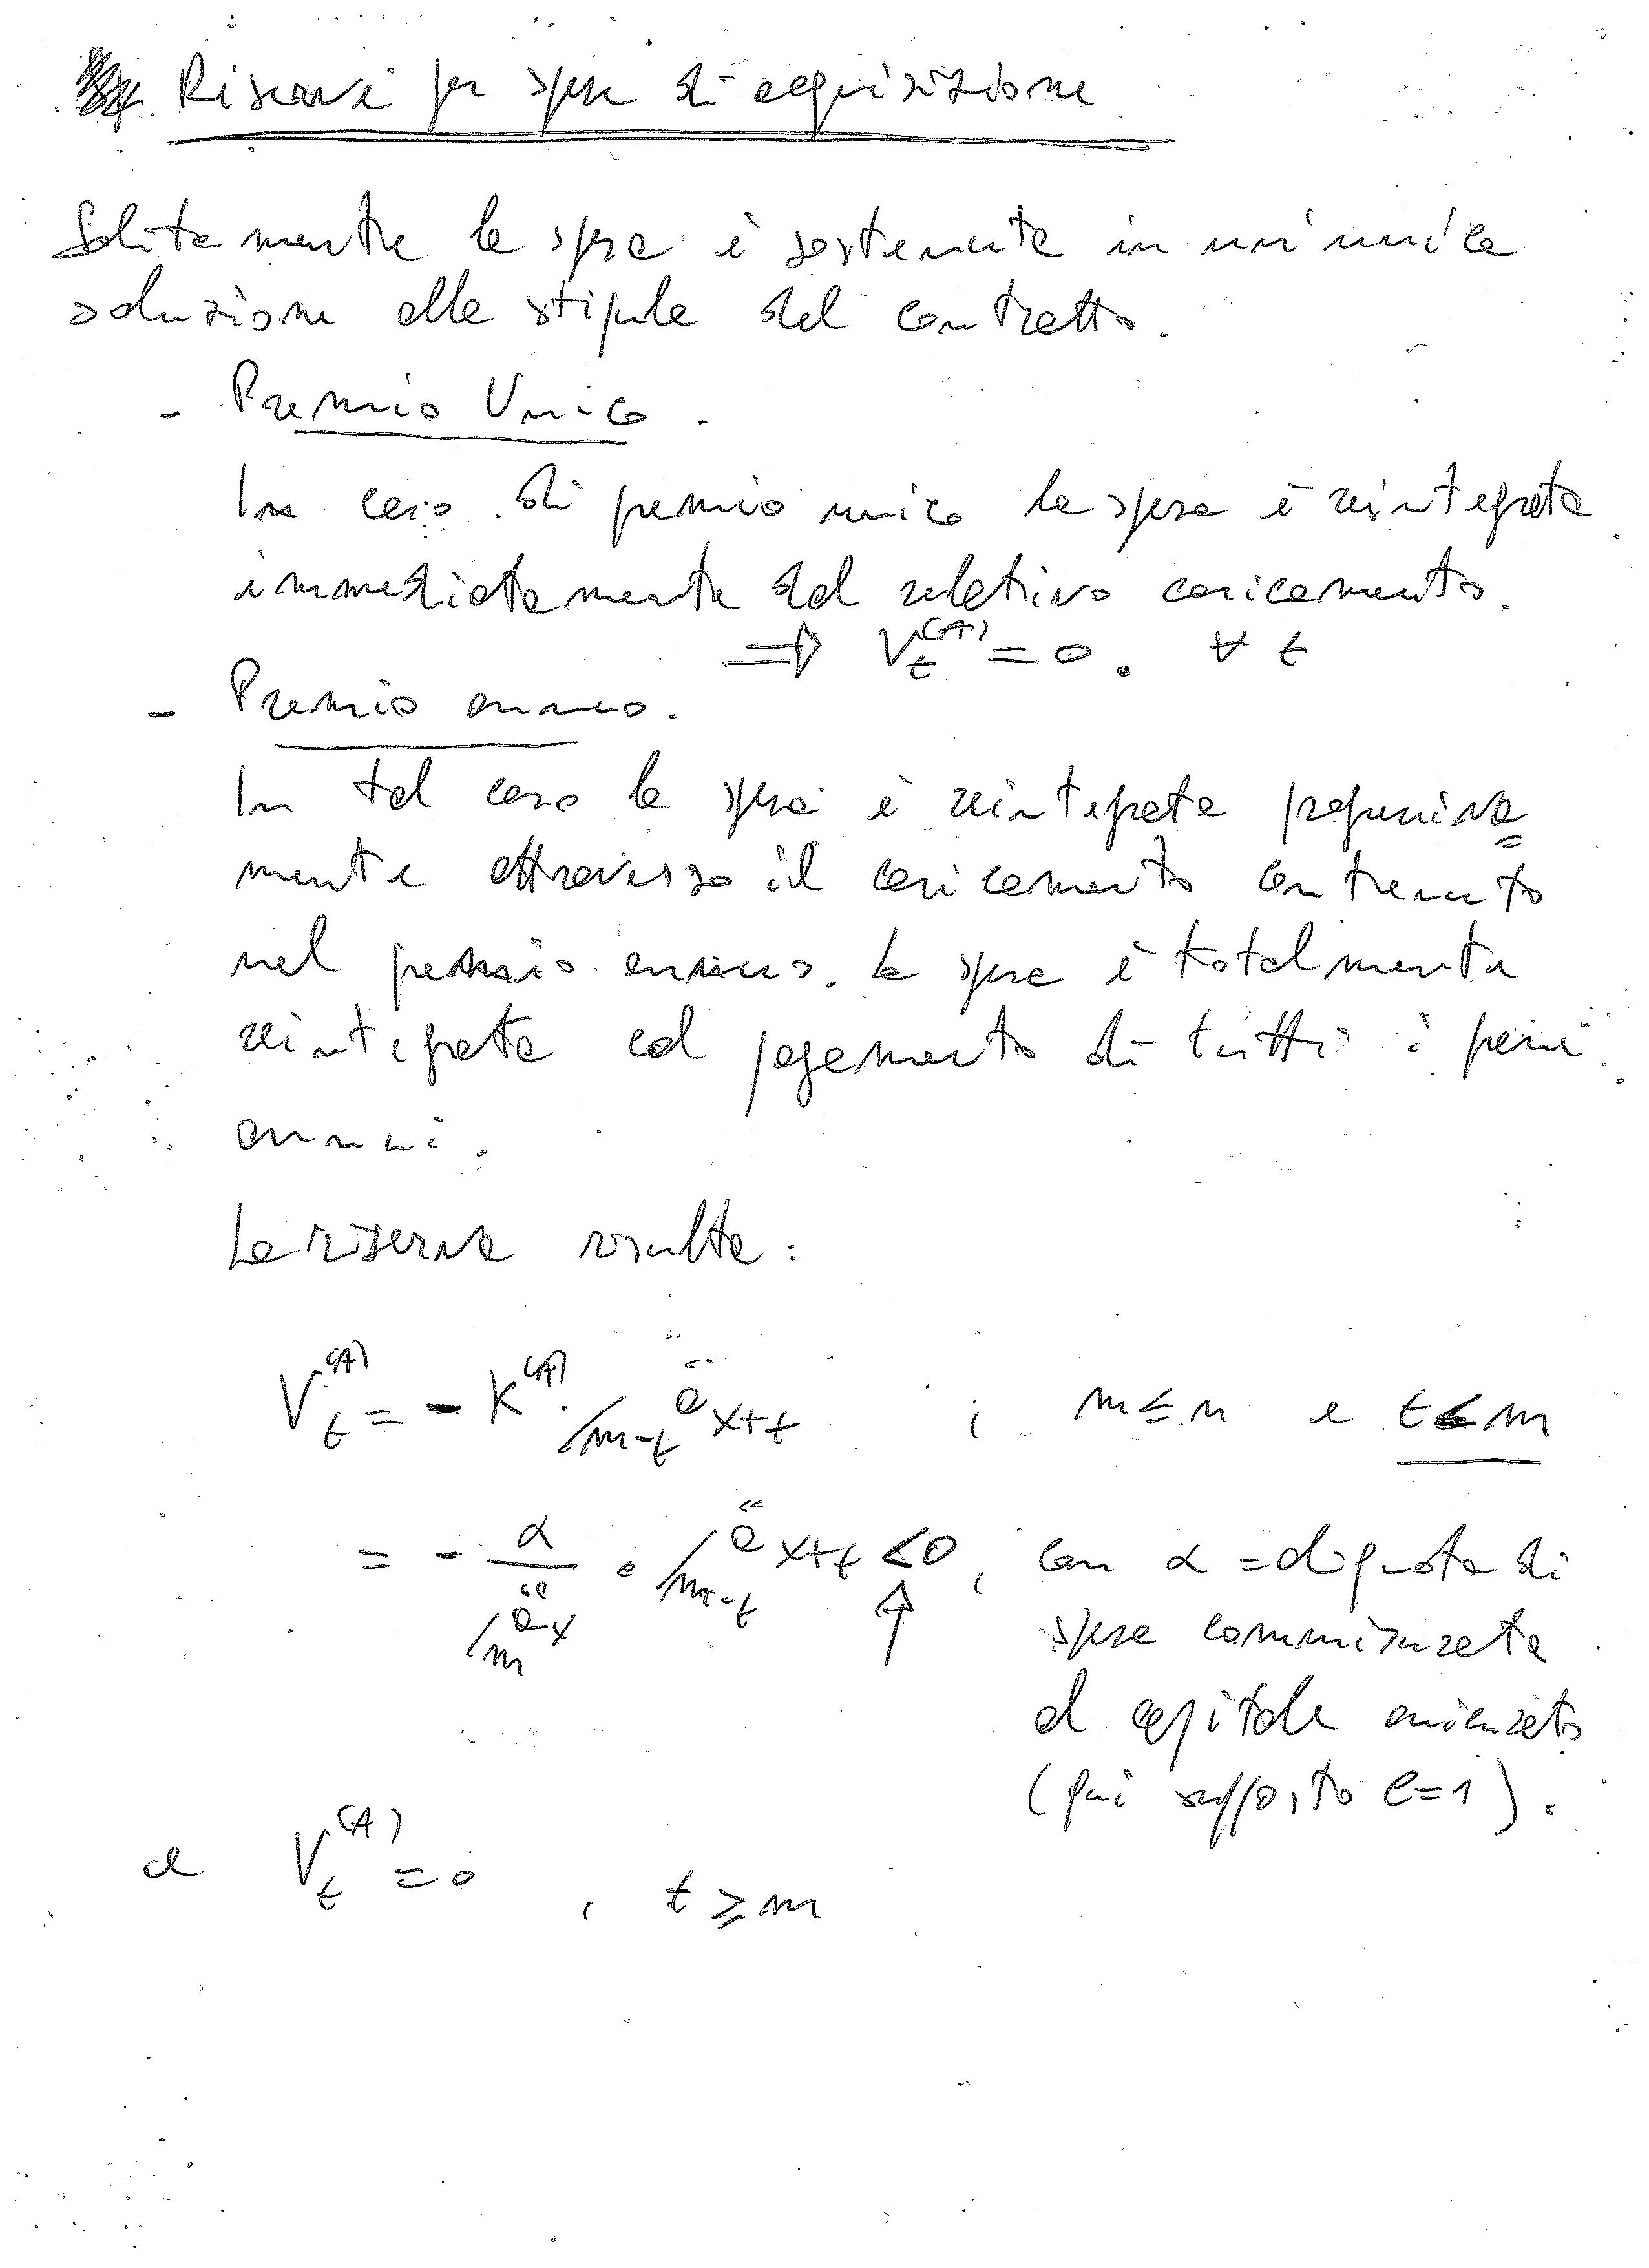 Riserve per spese di acquisizione
Solitamente la spesa è sostenuta in un'unica
soluzione alla stipula del contratto.
- Premio Unico.
In caso di premio unico la spesa è reintegrata
immediatamente dal relativo caricamento.
⇒ V_t^(A) = 0. ∀ t
- Premio annuo.
In tal caso la spesa è reintegrata progressiva=
mente attraverso il caricamento contenuto
nel premio annuo. La spesa è totalmente
reintegrata col pagamento di tutti i premi
annui.
La riserva risulta:
V_t^(A) = - K^(A) · /m-t ä x+t ; m ≤ n e t < m
= - α / /m ä x · /m-t ä x+t < 0, con α = aliquota di
↑ spese commisurata
al capitale assicurato
(qui supposto C=1).
e V_t^(A) = 0 , t ≥ m